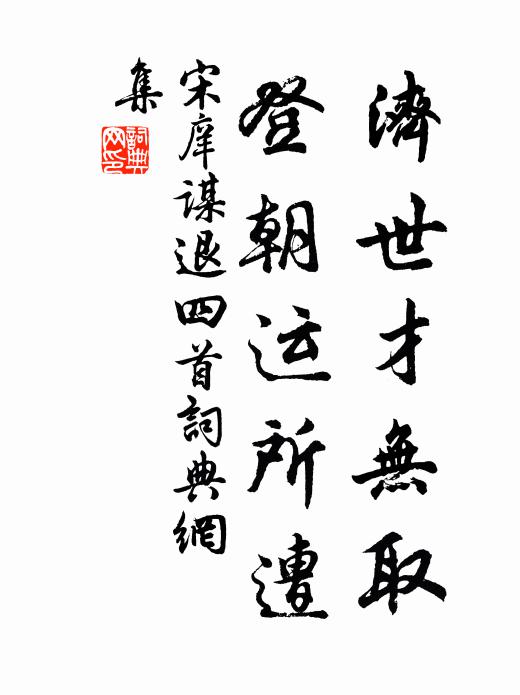 濟世才無取
登朝运所遭
宋庠謀退四首詞典網
集
詞典网印